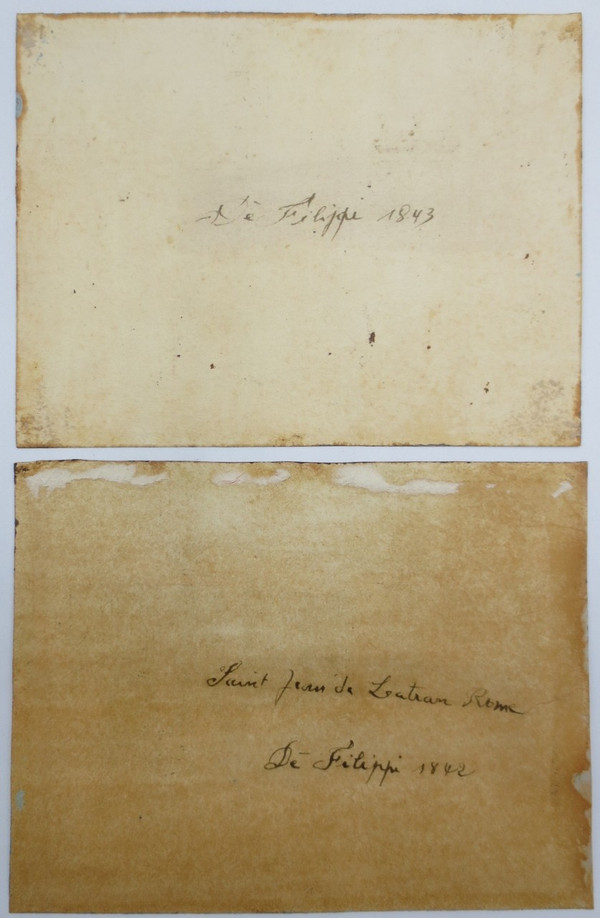 Dè Filippi 1843
Saint Jean de Latran Rome
Dè Filippi 1842